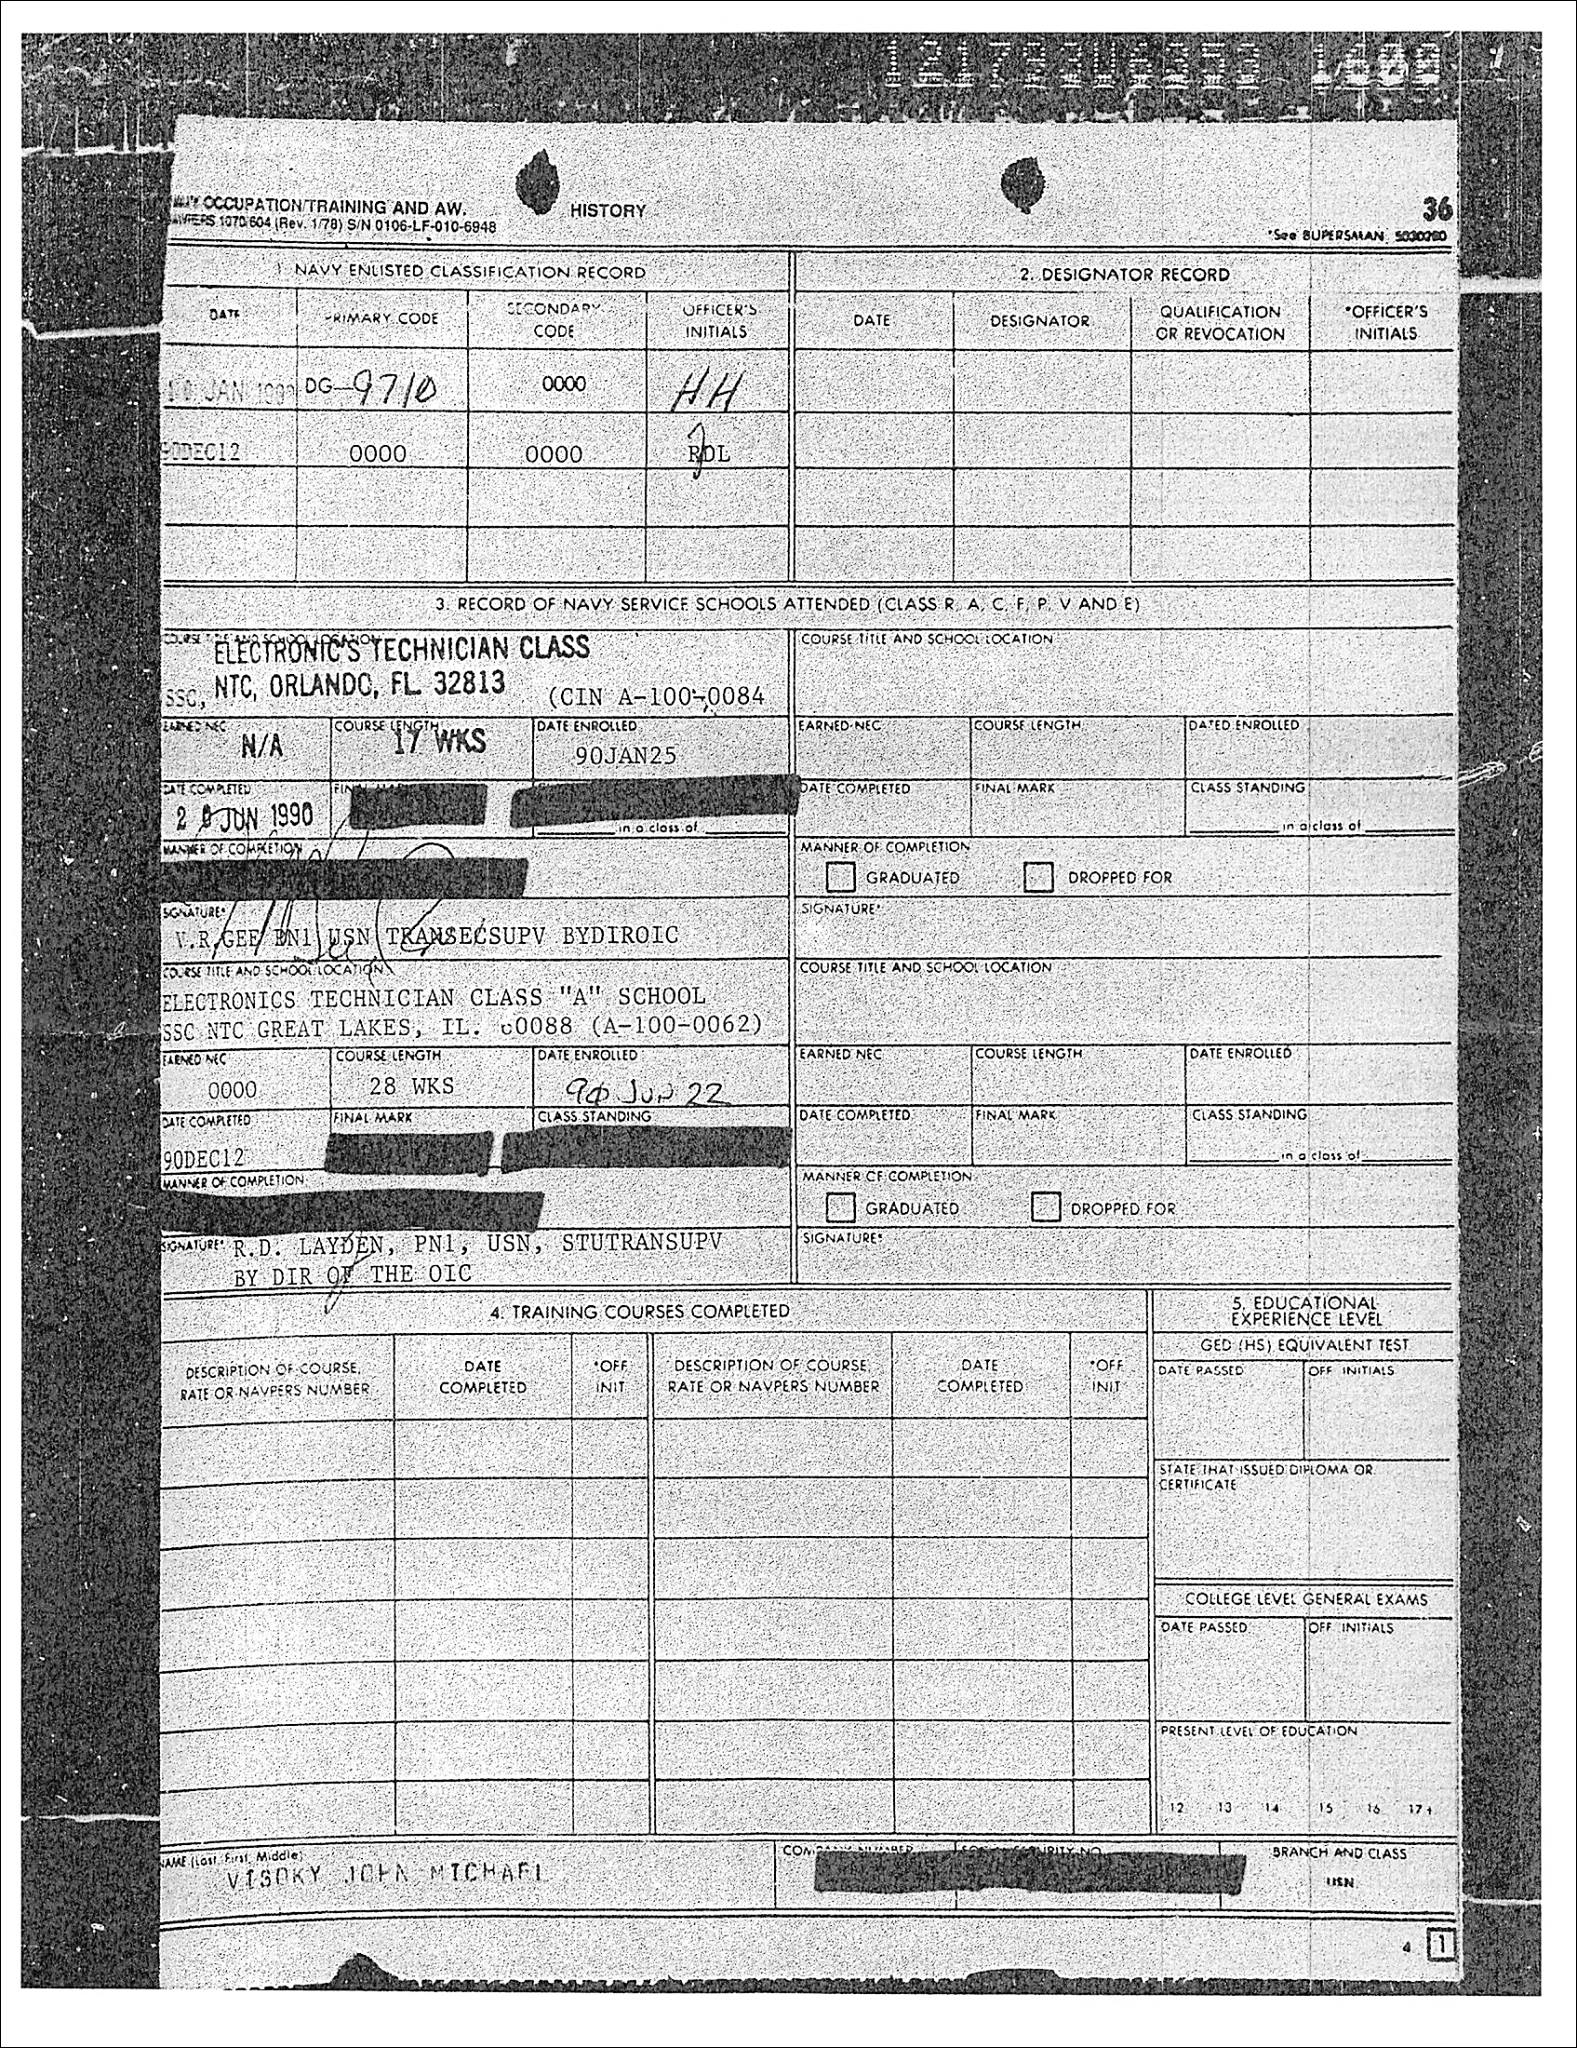 OCCUPATION/TRAINING AND AW. HISTORY
1070/604 (Rev. 1/78) S/N 0106-LF-010-6948
36
*See BUPERSMAN 5030280
1 NAVY ENLISTED CLASSIFICATION RECORD
2. DESIGNATOR RECORD
DATE PRIMARY CODE SECONDARY CODE OFFICER'S INITIALS
DATE DESIGNATOR QUALIFICATION OR REVOCATION *OFFICER'S INITIALS
JAN DG-9710 0000 HH
90DEC12 0000 0000 RDL
3. RECORD OF NAVY SERVICE SCHOOLS ATTENDED (CLASS R, A, C, F, P, V AND E)
COURSE TITLE AND SCHOOL LOCATION
ELECTRONIC'S TECHNICIAN CLASS
SSC, NTC, ORLANDO, FL 32813 (CIN A-100-0084
EARNED NEC COURSE LENGTH DATE ENROLLED
N/A 17 WKS 90JAN25
DATE COMPLETED
JUN 1990
in a class of
MANNER OF COMPLETION
SIGNATURE*
V.R.GEE PN1 USN TRANSECSUPV BYDIROIC
COURSE TITLE AND SCHOOL LOCATION
ELECTRONICS TECHNICIAN CLASS "A" SCHOOL
SSC NTC GREAT LAKES, IL. 60088 (A-100-0062)
EARNED NEC COURSE LENGTH DATE ENROLLED
0000 28 WKS 90 Jun 22
DATE COMPLETED FINAL MARK CLASS STANDING
90DEC12
MANNER OF COMPLETION
SIGNATURE* R.D. LAYDEN, PN1, USN, STUTRANSUPV
BY DIR OF THE OIC
COURSE TITLE AND SCHOOL LOCATION
EARNED NEC COURSE LENGTH DATED ENROLLED
DATE COMPLETED FINAL MARK CLASS STANDING
in a class of
MANNER OF COMPLETION
GRADUATED DROPPED FOR
SIGNATURE*
COURSE TITLE AND SCHOOL LOCATION
EARNED NEC COURSE LENGTH DATE ENROLLED
DATE COMPLETED FINAL MARK CLASS STANDING
in a class of
MANNER OF COMPLETION
GRADUATED DROPPED FOR
SIGNATURE*
4. TRAINING COURSES COMPLETED
DESCRIPTION OF COURSE, RATE OR NAVPERS NUMBER DATE COMPLETED *OFF INIT DESCRIPTION OF COURSE, RATE OR NAVPERS NUMBER DATE COMPLETED *OFF INIT
5. EDUCATIONAL
EXPERIENCE LEVEL
GED (HS) EQUIVALENT TEST
DATE PASSED OFF INITIALS
STATE THAT ISSUED DIPLOMA OR
CERTIFICATE
COLLEGE LEVEL GENERAL EXAMS
DATE PASSED OFF INITIALS
PRESENT LEVEL OF EDUCATION
12 13 14 15 16 17+
NAME (Last, First, Middle)
VISOKY JOHN MICHAEL
BRANCH AND CLASS
USN
4 1